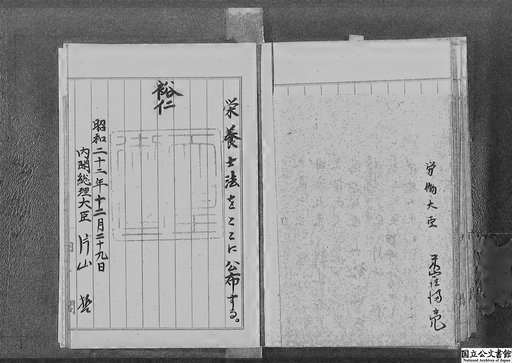 労働大臣 米窪満亮
栄養士法をここに公布する。
裕仁
昭和二十二年十二月二十九日
内閣総理大臣 片山哲
国立公文書館
National Archives of Japan